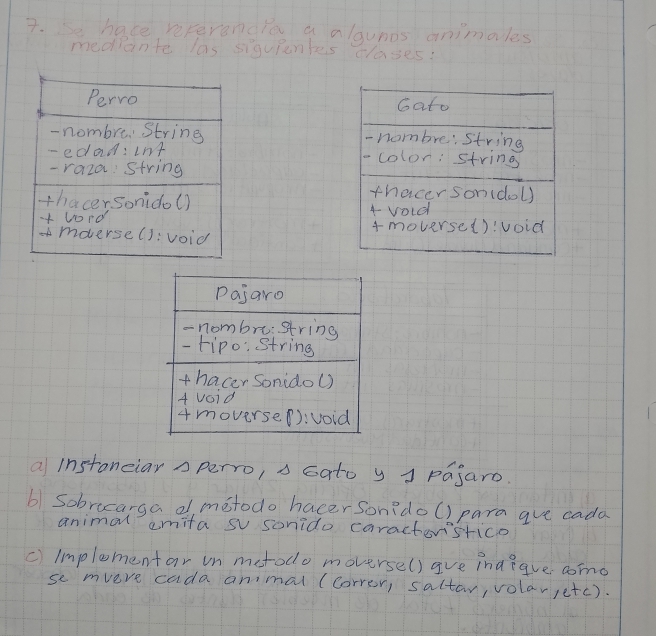 7. Se hace referencia a algunos animales
mediante las siguientes clases:
Perro
-nombre: String
-edad: int
-raza: String
+hacerSonido()
+ void
+ moverse(): void
Gato
-nombre: String
-color: String
+hacerSonido()
+ void
+ moverse(): void
Pajaro
-nombre: String
-tipo: String
+hacerSonido()
+ void
+moverse(): void
a) Instanciar 1 perro, 1 Gato y 1 Pájaro.
b) Sobrecarga el método hacerSonido() para que cada
animal emita su sonido característico
c) Implementar un metodo moverse() que indique como
se mueve cada animal (correr, saltar, volar, etc).